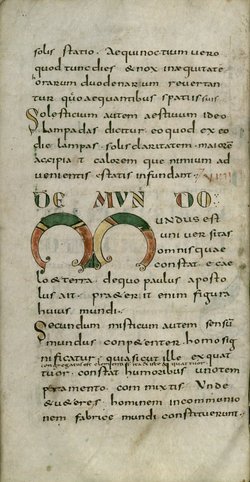 solis statio. Aequinoctium uero
quod tunc dies & nox inaequitate
horarum duodenarum reuertan
tur quo aequantibus spatiis suis
Solestitium autem aestiuum ideo
lampadas dicitur eo quod ex eo
die lampas solis claritatem maiorē
accipiat calorem que nimium ad
uenientis estatis infundant
DE MUNDO
Mundus est
uniuersitas
omnis quae
constat e cae
lo & terra. de quo paulus aposto
lus ait. praeterit enim figura
huius mundi.
Secundum misticum autem sensū
mundus conpetenter homo sig
nificatur quia sicut ille ex quat
tuor constat humoribus uno tem
peramento commixtis Unde
& ueteres hominem in communio
nem fabrice mundi constituerunt